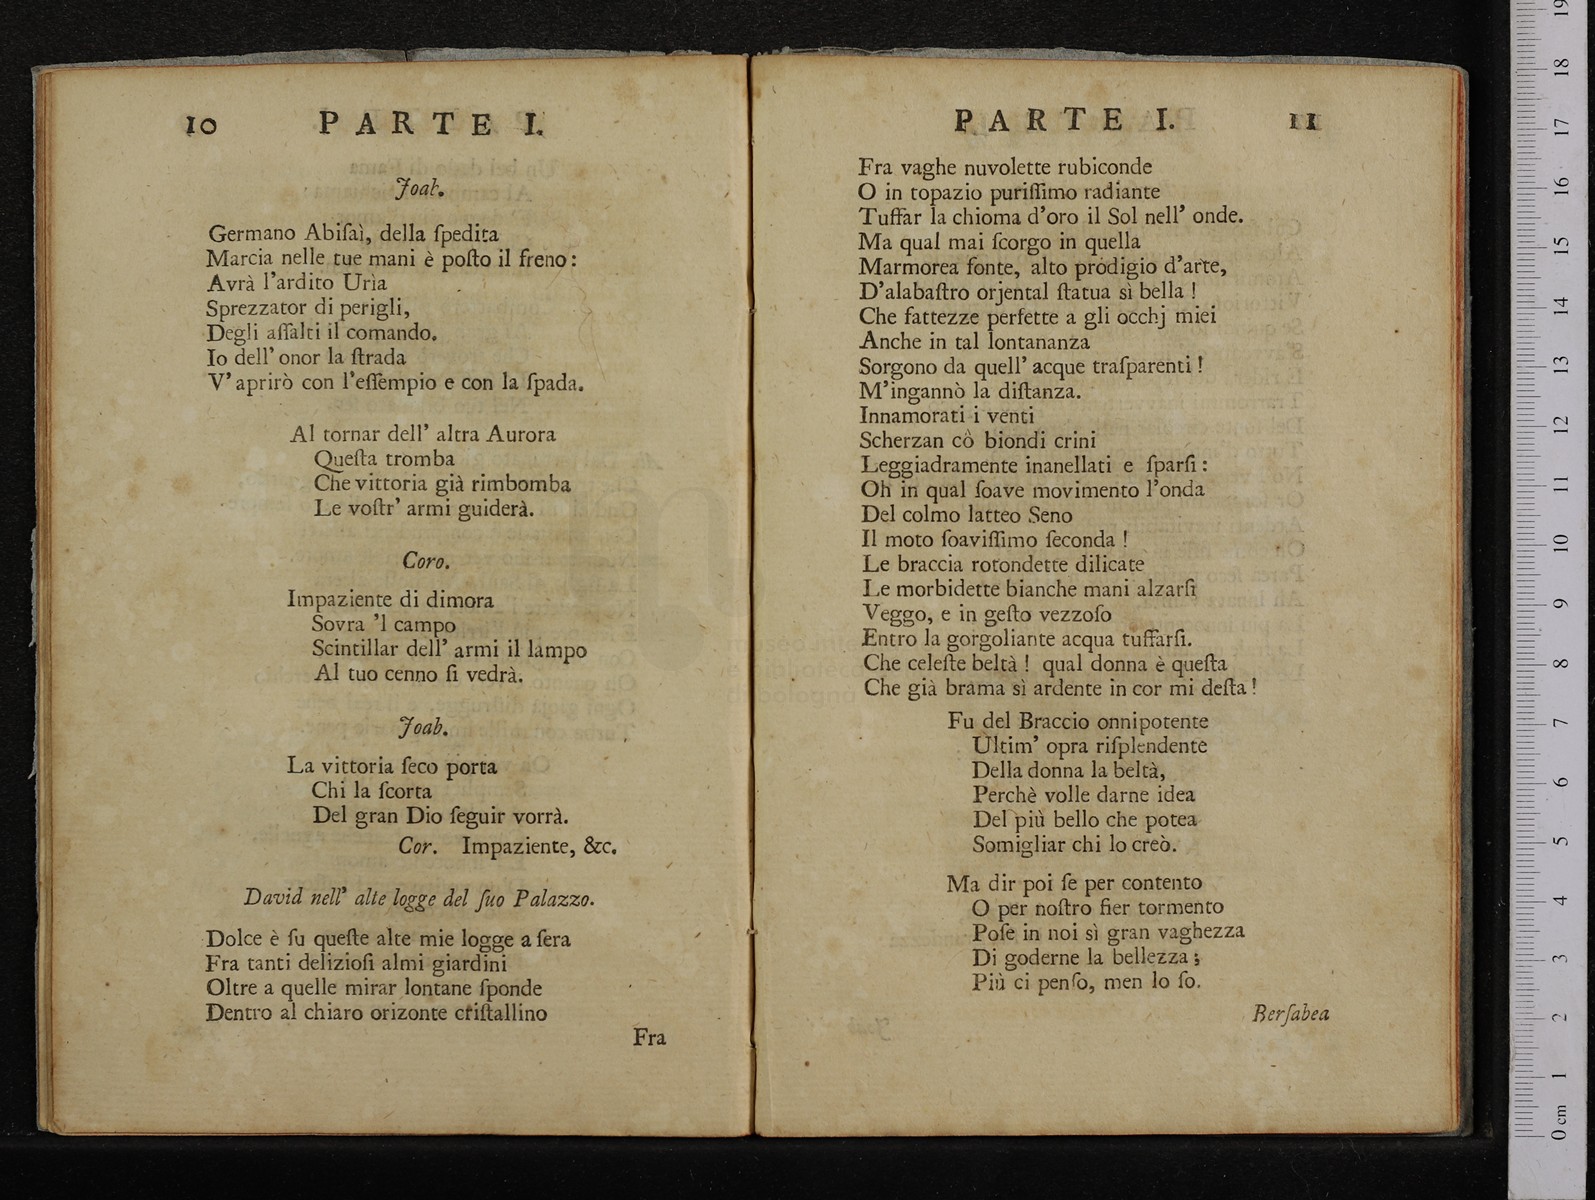 10 PARTE I.
Joab.
Germano Abiſaì, della ſpedita
Marcia nelle tue mani è poſto il freno:
Avrà l'ardito Urìa
Sprezzator di perigli,
Degli aſſalti il comando.
Io dell' onor la ſtrada
V' aprirò con l'eſſempio e con la ſpada.
Al tornar dell' altra Aurora
Queſta tromba
Che vittoria già rimbomba
Le voſtr' armi guiderà.
Coro.
Impaziente di dimora
Sovra 'l campo
Scintillar dell' armi il lampo
Al tuo cenno ſi vedrà.
Joab.
La vittoria ſeco porta
Chi la ſcorta
Del gran Dio ſeguir vorrà.
Cor. Impaziente, &c.
David nell' alte logge del ſuo Palazzo.
Dolce è ſu queſte alte mie logge a ſera
Fra tanti delizioſi almi giardini
Oltre a quelle mirar lontane ſponde
Dentro al chiaro orizonte criſtallino
Fra
PARTE I. 11
Fra vaghe nuvolette rubiconde
O in topazio puriſſimo radiante
Tuffar la chioma d'oro il Sol nell' onde.
Ma qual mai ſcorgo in quella
Marmorea fonte, alto prodigio d'arte,
D'alabaſtro orjental ſtatua sì bella !
Che fattezze perfette a gli occhj miei
Anche in tal lontananza
Sorgono da quell' acque traſparenti !
M'ingannò la diſtanza.
Innamorati i venti
Scherzan cò biondi crini
Leggiadramente inanellati e ſparſi :
Oh in qual ſoave movimento l'onda
Del colmo latteo Seno
Il moto ſoaviſſimo ſeconda !
Le braccia rotondette dilicate
Le morbidette bianche mani alzarſi
Veggo, e in geſto vezzoſo
Entro la gorgoliante acqua tuffarſi.
Che celeſte beltà ! qual donna è queſta
Che già brama sì ardente in cor mi deſta !
Fu del Braccio onnipotente
Ultim' opra riſplendente
Della donna la beltà,
Perchè volle darne idea
Del più bello che potea
Somigliar chi lo creò.
Ma dir poi ſe per contento
O per noſtro fier tormento
Poſe in noi sì gran vaghezza
Di goderne la bellezza ;
Più ci penſo, men lo ſo.
Berſabea
19
18
17
16
15
14
13
12
11
10
9
8
7
6
5
4
3
2
1
0 cm